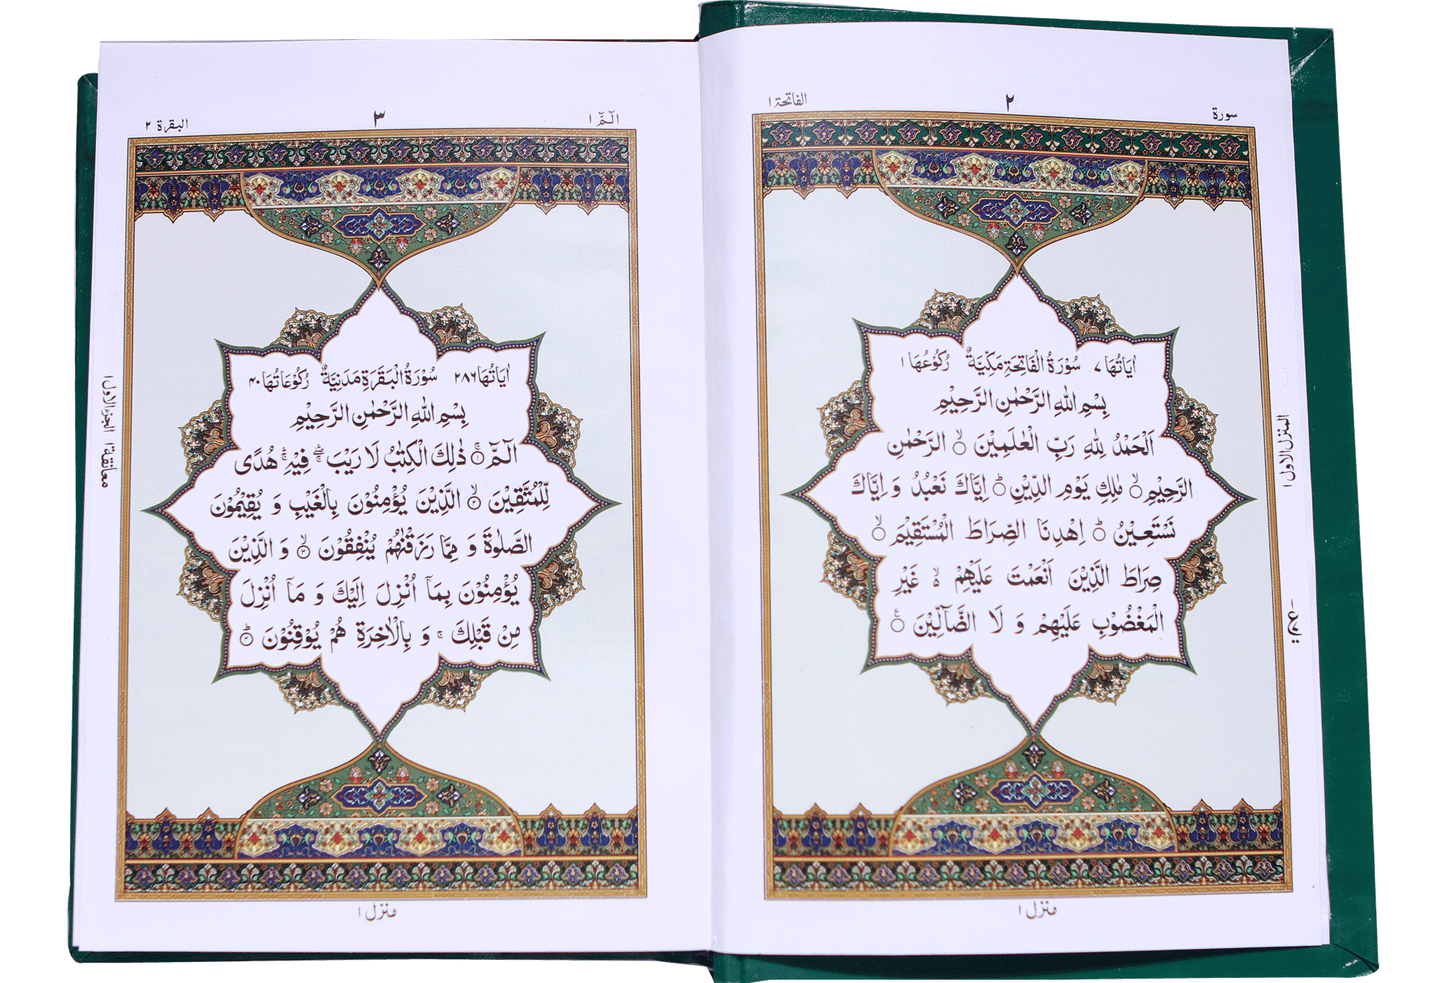 سورة ٢ الفاتحة ١
اٰيَاتُهَا ٧ سُوْرَةُ الْفَاتِحَةِ مَكِّيَّةٌ رُكُوْعُهَا ١
بِسْمِ اللّٰهِ الرَّحْمٰنِ الرَّحِيْمِ
اَلْحَمْدُ لِلّٰهِ رَبِّ الْعٰلَمِيْنَ ۙ الرَّحْمٰنِ
الرَّحِيْمِ ۙ مٰلِكِ يَوْمِ الدِّيْنِ ؕ اِيَّاكَ نَعْبُدُ وَ اِيَّاكَ
نَسْتَعِيْنُ ؕ اِهْدِنَا الصِّرَاطَ الْمُسْتَقِيْمَ ۙ
صِرَاطَ الَّذِيْنَ اَنْعَمْتَ عَلَيْهِمْ ۙ غَيْرِ
الْمَغْضُوْبِ عَلَيْهِمْ وَ لَا الضَّآلِّيْنَ
المنزل الاول ١
منزل ١
الٓمّٓ ١ ٣ البقرة ٢
اٰيَاتُهَا ٢٨٦ سُوْرَةُ الْبَقَرَةِ مَدَنِيَّةٌ رُكُوْعَاتُهَا ٤٠
بِسْمِ اللّٰهِ الرَّحْمٰنِ الرَّحِيْمِ
الٓمّٓ ۚ ذٰلِكَ الْكِتٰبُ لَا رَيْبَ ۛۖ فِيْهِ ۛۚ هُدًى
لِّلْمُتَّقِيْنَ ۙ الَّذِيْنَ يُؤْمِنُوْنَ بِالْغَيْبِ وَ يُقِيْمُوْنَ
الصَّلٰوةَ وَ مِمَّا رَزَقْنٰهُمْ يُنْفِقُوْنَ ۙ وَ الَّذِيْنَ
يُؤْمِنُوْنَ بِمَاۤ اُنْزِلَ اِلَيْكَ وَ مَاۤ اُنْزِلَ
مِنْ قَبْلِكَ ۚ وَ بِالْاٰخِرَةِ هُمْ يُوْقِنُوْنَ ؕ
معانقة ١ الجزء الاول ١
منزل ١